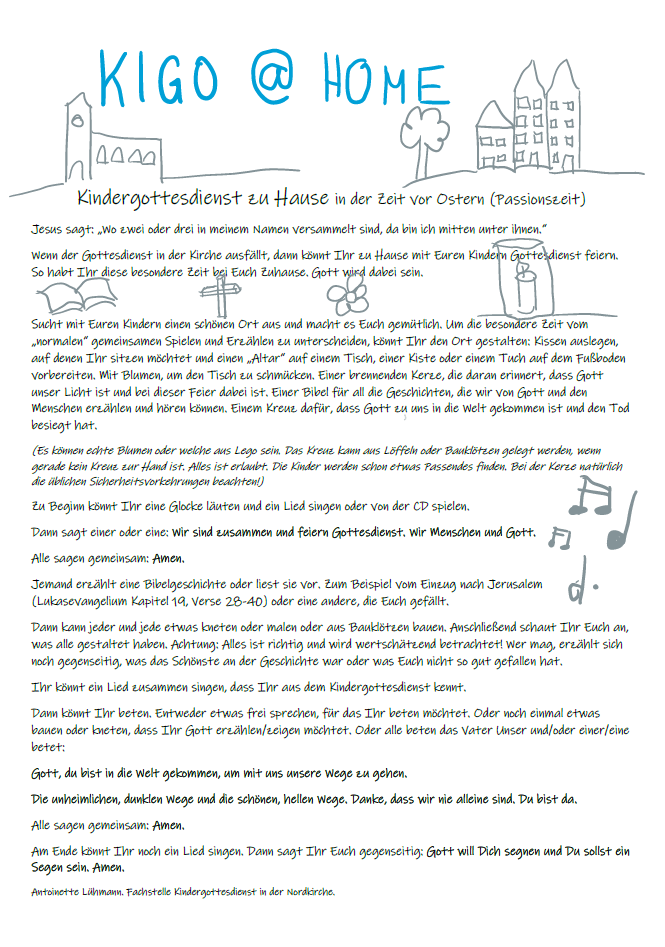 KIGO @ HOME
Kindergottesdienst zu Hause in der Zeit vor Ostern (Passionszeit)
Jesus sagt: „Wo zwei oder drei in meinem Namen versammelt sind, da bin ich mitten unter ihnen.“
Wenn der Gottesdienst in der Kirche ausfällt, dann könnt Ihr zu Hause mit Euren Kindern Gottesdienst feiern.
So habt Ihr diese besondere Zeit bei Euch Zuhause. Gott wird dabei sein.
Sucht mit Euren Kindern einen schönen Ort aus und macht es Euch gemütlich. Um die besondere Zeit vom
„normalen“ gemeinsamen Spielen und Erzählen zu unterscheiden, könnt Ihr den Ort gestalten: Kissen auslegen,
auf denen Ihr sitzen möchtet und einen „Altar“ auf einem Tisch, einer Kiste oder einem Tuch auf dem Fußboden
vorbereiten. Mit Blumen, um den Tisch zu schmücken. Einer brennenden Kerze, die daran erinnert, dass Gott
unser Licht ist und bei dieser Feier dabei ist. Einer Bibel für all die Geschichten, die wir von Gott und den
Menschen erzählen und hören können. Einem Kreuz dafür, dass Gott zu uns in die Welt gekommen ist und den Tod
besiegt hat.
(Es können echte Blumen oder welche aus Lego sein. Das Kreuz kann aus Löffeln oder Bauklötzen gelegt werden, wenn
gerade kein Kreuz zur Hand ist. Alles ist erlaubt. Die Kinder werden schon etwas Passendes finden. Bei der Kerze natürlich
die üblichen Sicherheitsvorkehrungen beachten!)
Zu Beginn könnt Ihr eine Glocke läuten und ein Lied singen oder von der CD spielen.
Dann sagt einer oder eine: Wir sind zusammen und feiern Gottesdienst. Wir Menschen und Gott.
Alle sagen gemeinsam: Amen.
Jemand erzählt eine Bibelgeschichte oder liest sie vor. Zum Beispiel vom Einzug nach Jerusalem
(Lukasevangelium Kapitel 19, Verse 28-40) oder eine andere, die Euch gefällt.
Dann kann jeder und jede etwas kneten oder malen oder aus Bauklötzen bauen. Anschließend schaut Ihr Euch an,
was alle gestaltet haben. Achtung: Alles ist richtig und wird wertschätzend betrachtet! Wer mag, erzählt sich
noch gegenseitig, was das Schönste an der Geschichte war oder was Euch nicht so gut gefallen hat.
Ihr könnt ein Lied zusammen singen, dass Ihr aus dem Kindergottesdienst kennt.
Dann könnt Ihr beten. Entweder etwas frei sprechen, für das Ihr beten möchtet. Oder noch einmal etwas
bauen oder kneten, dass Ihr Gott erzählen/zeigen möchtet. Oder alle beten das Vater Unser und/oder einer/eine
betet:
Gott, du bist in die Welt gekommen, um mit uns unsere Wege zu gehen.
Die unheimlichen, dunklen Wege und die schönen, hellen Wege. Danke, dass wir nie alleine sind. Du bist da.
Alle sagen gemeinsam: Amen.
Am Ende könnt Ihr noch ein Lied singen. Dann sagt Ihr Euch gegenseitig: Gott will Dich segnen und Du sollst ein
Segen sein. Amen.
Antoinette Lühmann. Fachstelle Kindergottesdienst in der Nordkirche.